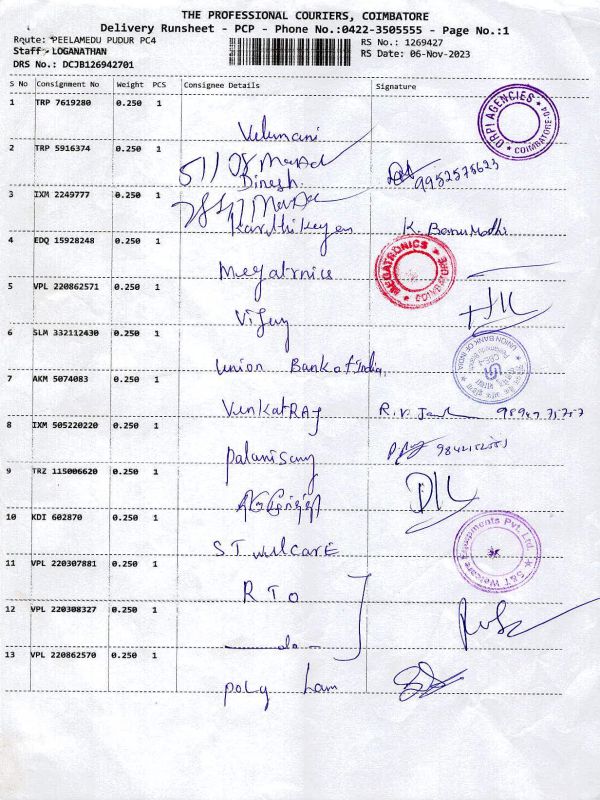 THE PROFESSIONAL COURIERS, COIMBATORE
Delivery Runsheet - PCP - Phone No.:0422-3505555 - Page No.:1
Route: PEELAMEDU PUDUR PC4
RS No.: 1269427
Staff: LOGANATHAN
RS Date: 06-Nov-2023
DRS No.: DCJB126942701
S No Consignment No Weight PCS Consignee Details Signature
1 TRP 7619280 0.250 1
Velumani
ORPI AGENCIES COIMBATORE-04
2 TRP 5916374 0.250 1
Dinesh
9952578623
3 IXM 2249777 0.250 1
Karthikeyan K. Banumathi
4 EDQ 15928248 0.250 1
Megatronics
MEGATRONICS COIMBATORE
5 VPL 220862571 0.250 1
Vijay
6 SLM 332112430 0.250 1
Union Bank of India
UNION BANK OF INDIA
7 AKM 5074083 0.250 1
VenkatRAJ
8 IXM 505220220 0.250 1
Palanisamy
9 TRZ 115006620 0.250 1
10 KDI 602870 0.250 1
S.T. Welcare
S&T Welcare Equipments Pvt. Ltd.
11 VPL 220307881 0.250 1
RTO
12 VPL 220308327 0.250 1
do
13 VPL 220862570 0.250 1
Poly Lam